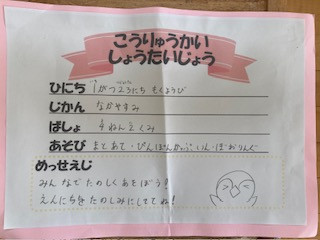 こうりゅうかい
しょうたいじょう
ひにち 1がつ23にち もくようび
じかん なかやすみ
ばしょ 4ねん2くみ
あそび まとあて・ぴんぽんかっぷいん・ぼおりんぐ
めっせえじ
みんなでたのしくあそぼう!
えんにちをたのしみにしててね!